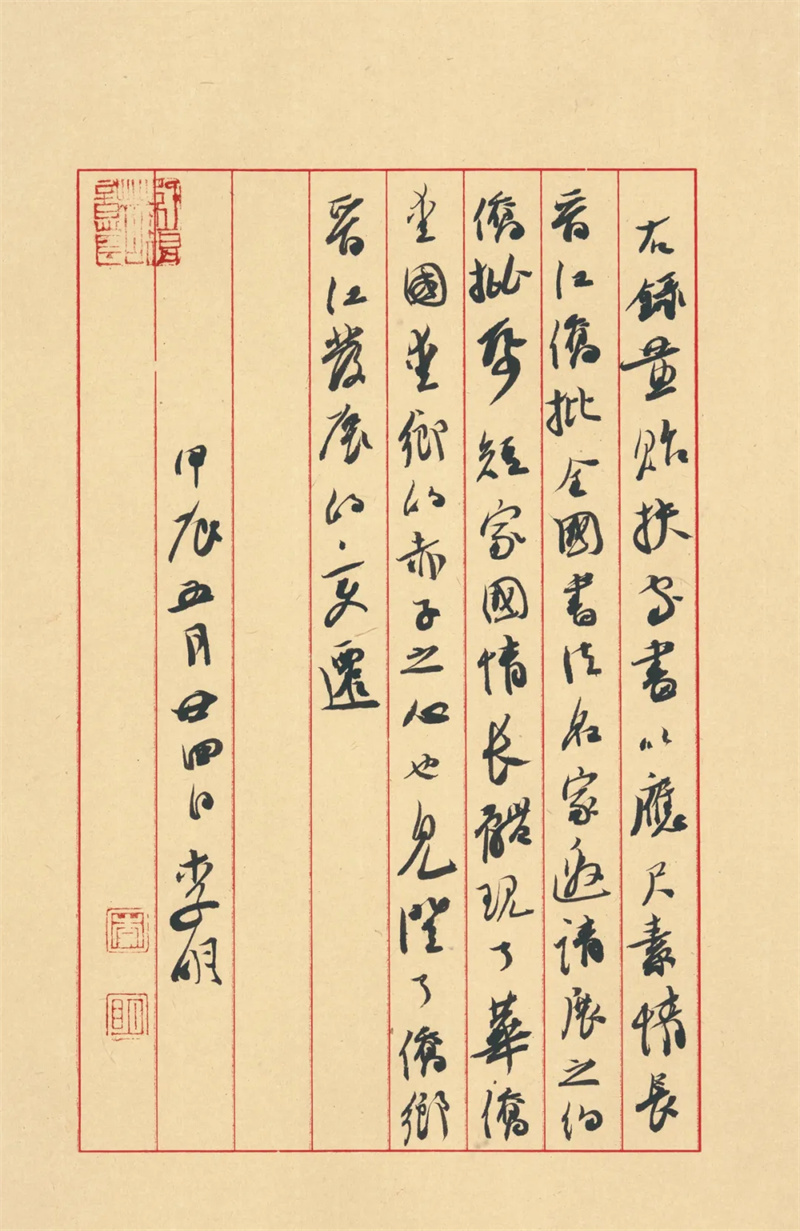 右錄黃貽扶家書以應尺素情長
晋江僑批全國書法名家邀請展之約
僑批帋短家國情長體現了華僑
愛國愛鄉的赤子之心也見證了僑鄉
晋江發展的变遷
甲辰五月廿四日李明